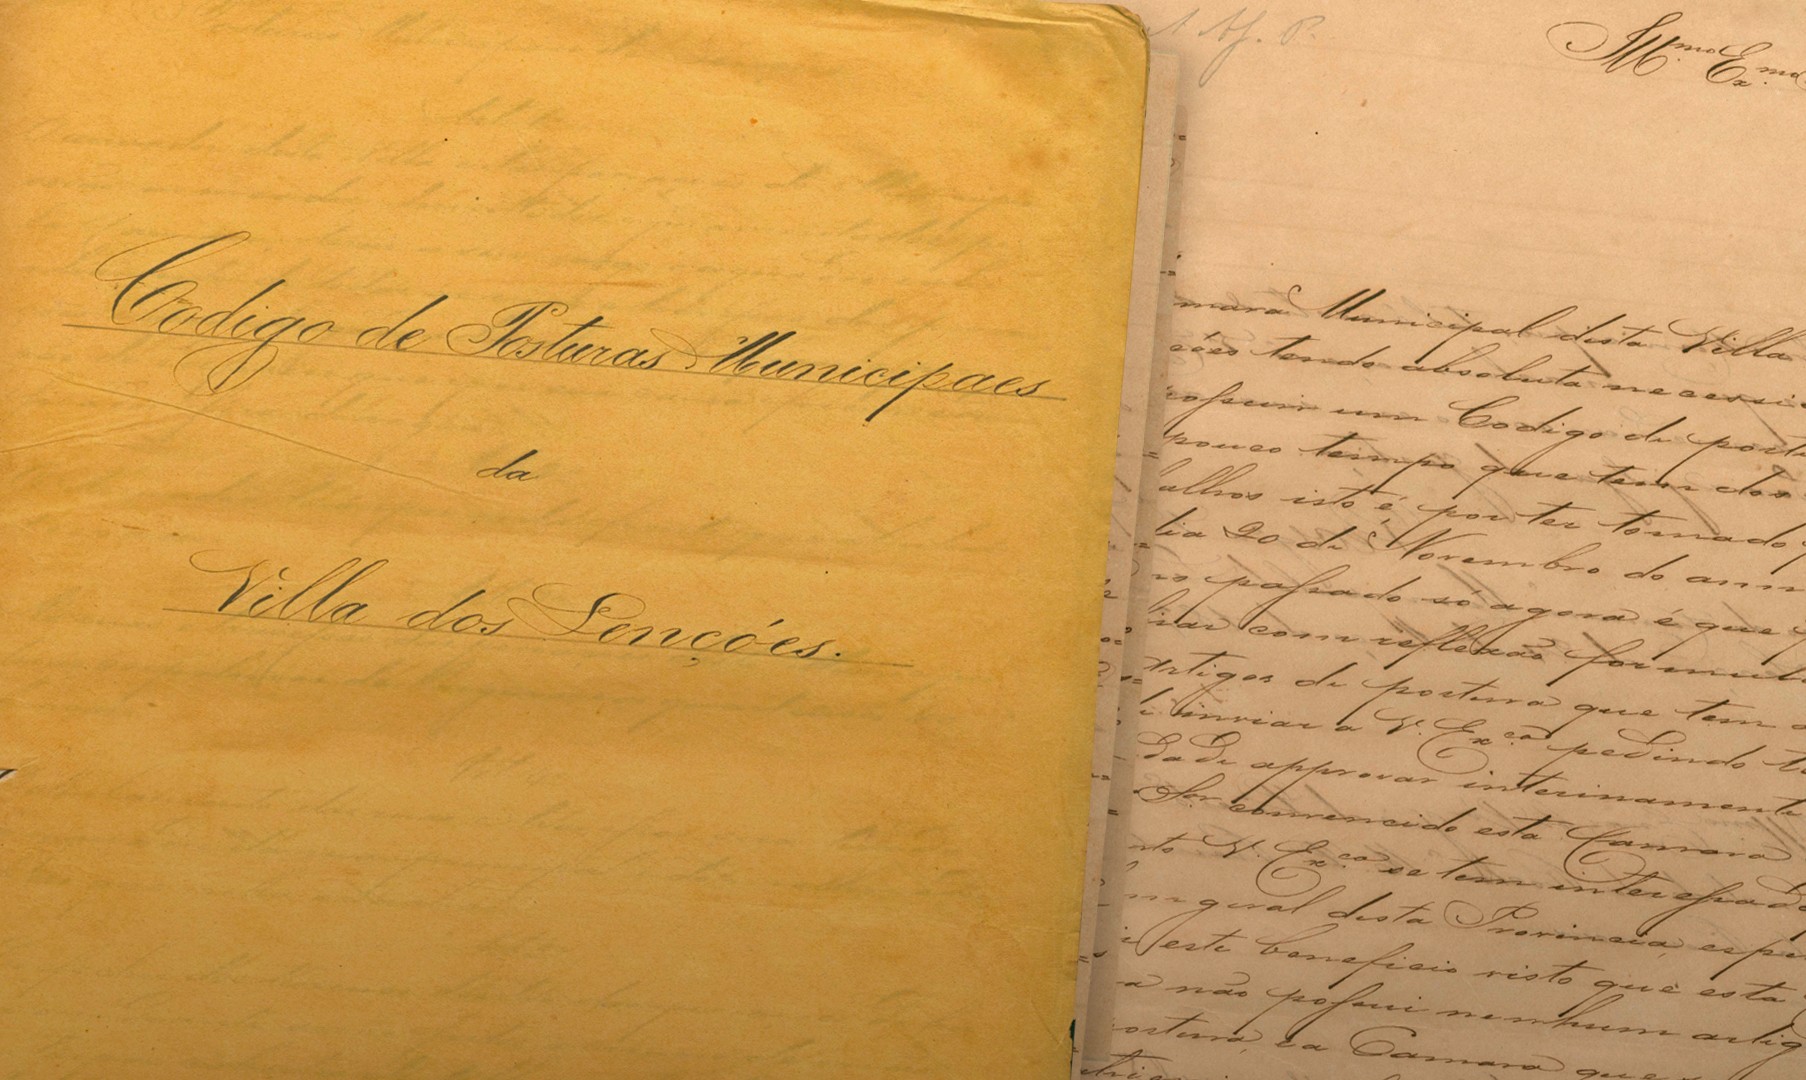 Codigo de Posturas Municipaes
da
Villa dos Lençóes.
Illmo Exmo
mara Municipal desta Villa
cóes tendo absoluta necessi
possuir um Codigo de post
pouco tempo que tem dos
alhos isto é, por ter tomado
dia 20 de Novembro do ann
passado só agora é que
com reflexão formul
artigos de postura que tem
inviar a V. Exca pedindo
approvar interinamente
convencido esta Camara
V. Exca se tem interessado
geral desta Provincia, esp
este beneficio visto que esta
a não possui nenhum artig
ostura, e a Camara que